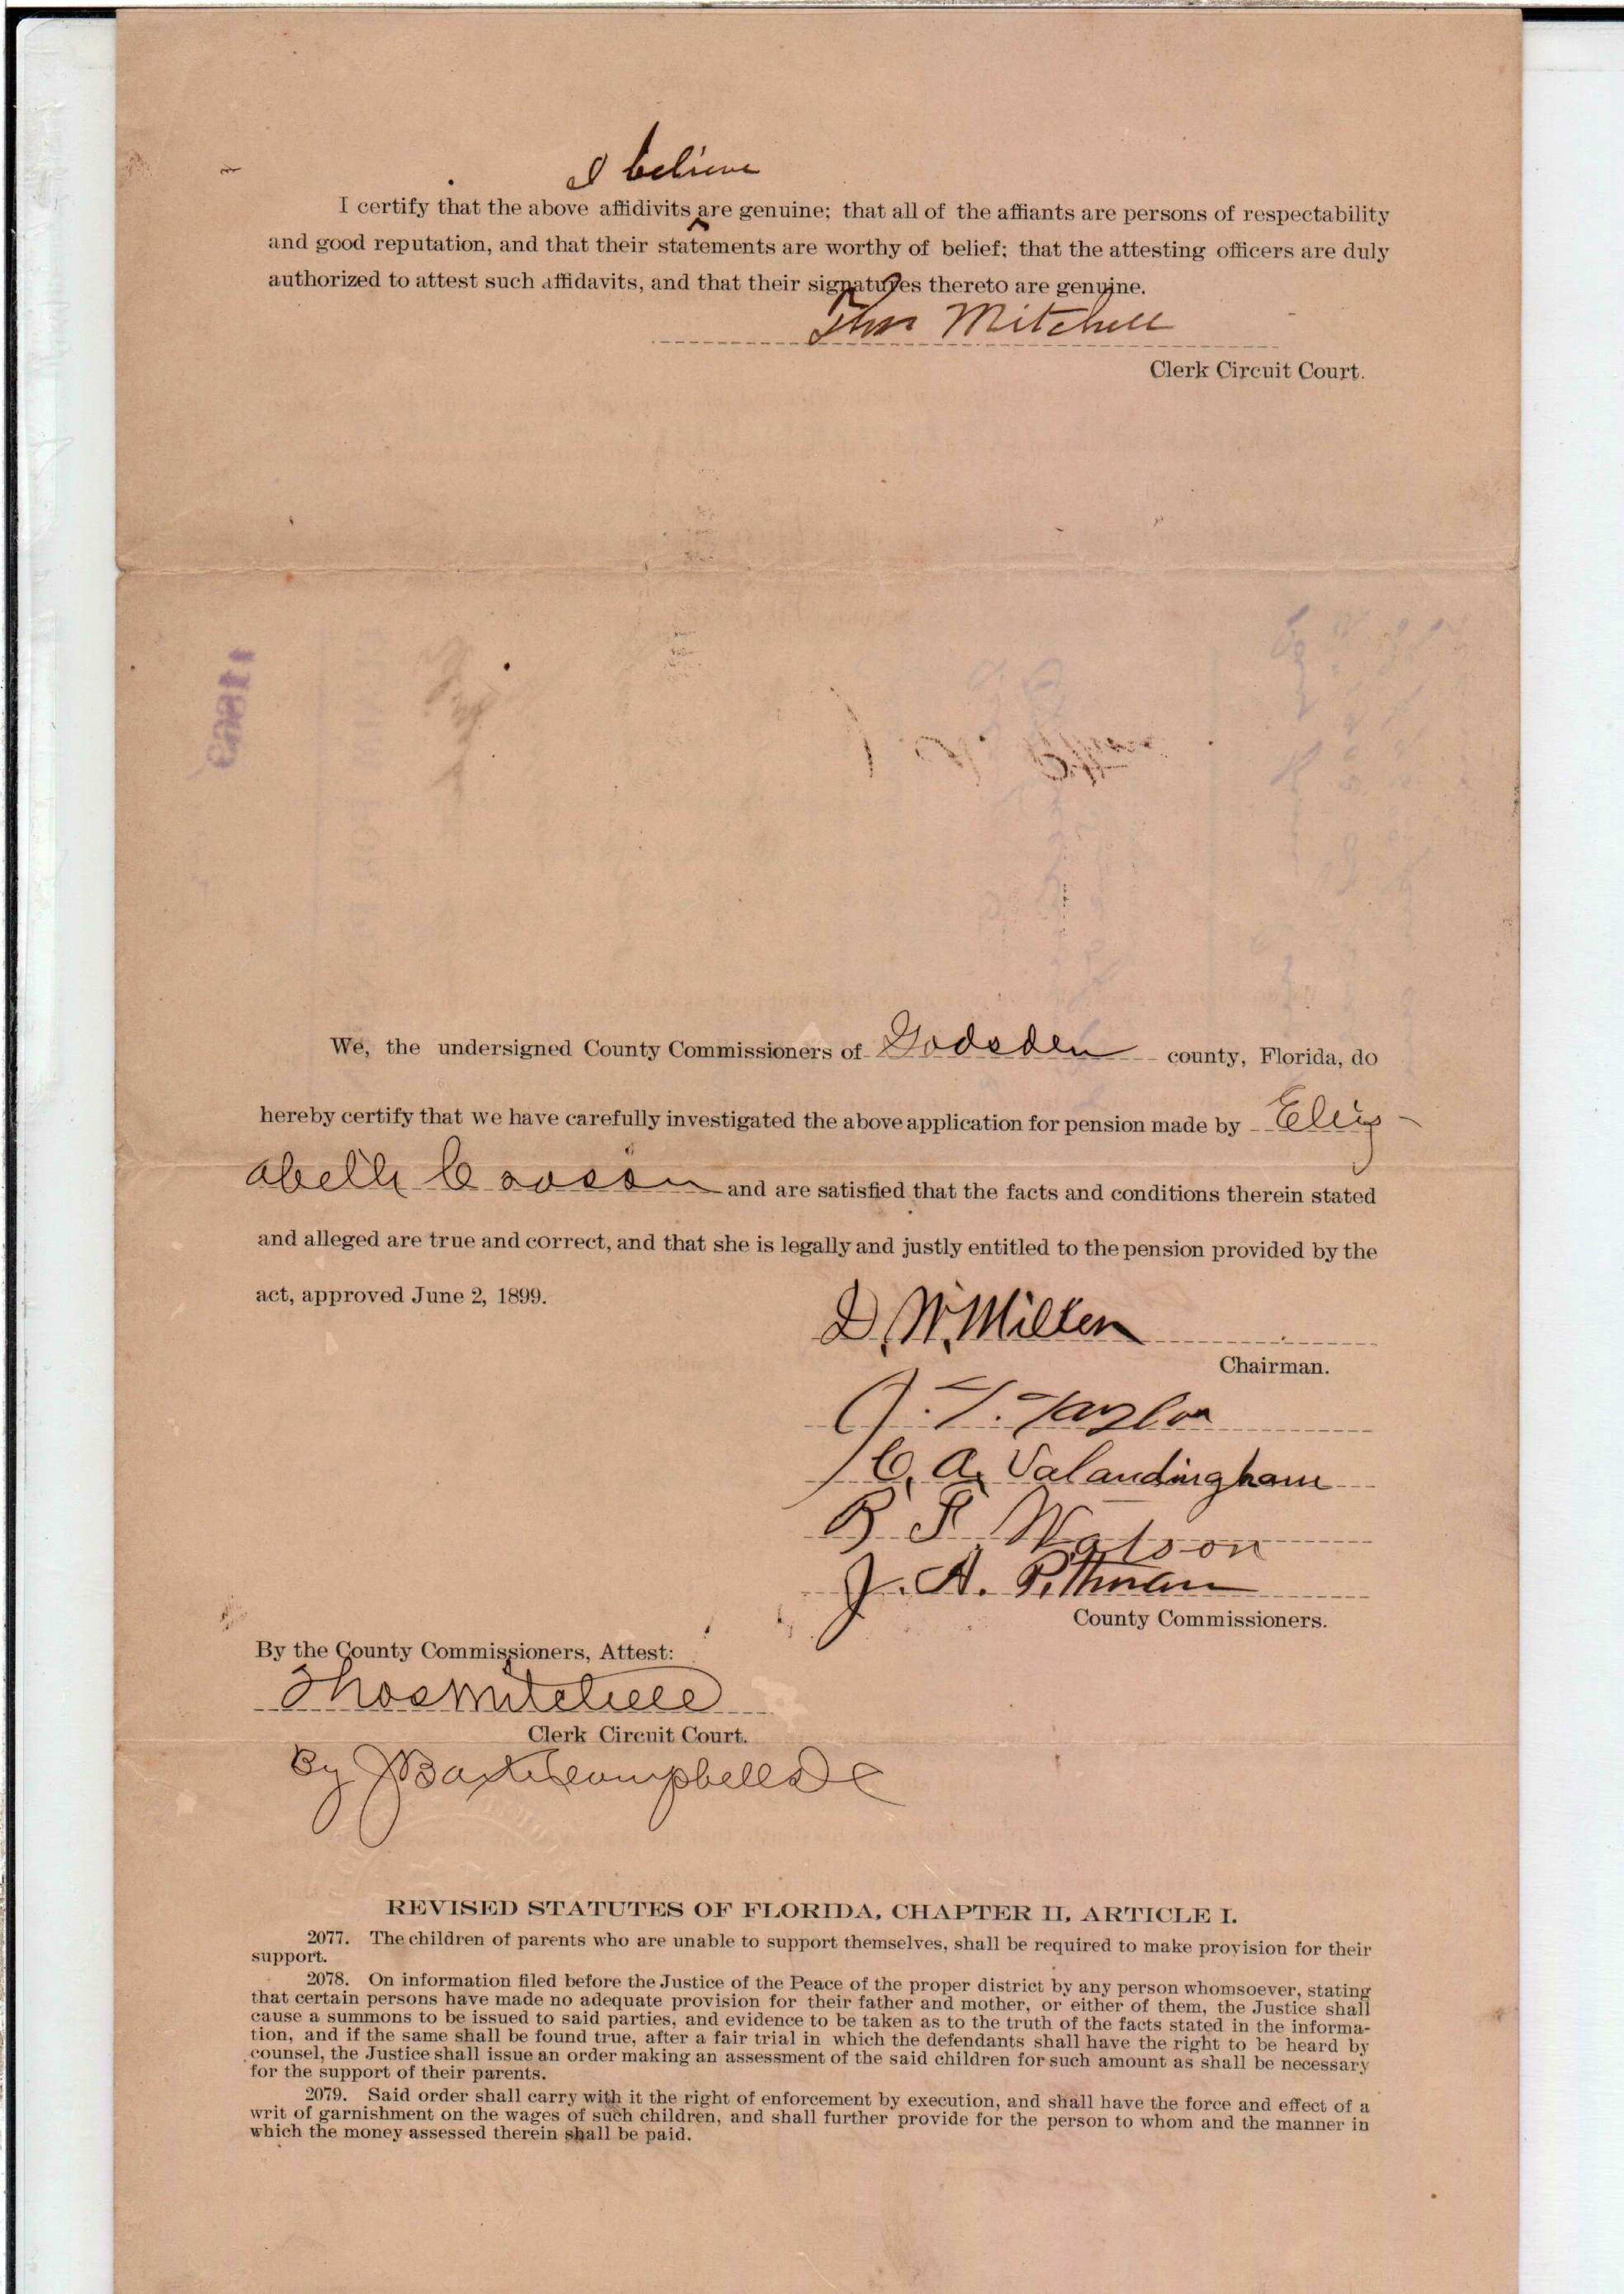 I believe
I certify that the above affidivits are genuine; that all of the affiants are persons of respectability
and good reputation, and that their statements are worthy of belief; that the attesting officers are duly
authorized to attest such affidavits, and that their signatures thereto are genuine.
Thos Mitchell
Clerk Circuit Court.
We, the undersigned County Commissioners of Gadsden county, Florida, do
hereby certify that we have carefully investigated the above application for pension made by Eliz-
abeth and are satisfied that the facts and conditions therein stated
and alleged are true and correct, and that she is legally and justly entitled to the pension provided by the
act, approved June 2, 1899.
D. W. Milten
Chairman.
J. T. Taylor
C. A. Valandingham
B. F. Watson
J. A. Pittman
County Commissioners.
By the County Commissioners, Attest:
Thos Mitchell
Clerk Circuit Court.
By Baxter Campbell DC
REVISED STATUTES OF FLORIDA, CHAPTER II, ARTICLE I.
2077. The children of parents who are unable to support themselves, shall be required to make provision for their
support.
2078. On information filed before the Justice of the Peace of the proper district by any person whomsoever, stating
that certain persons have made no adequate provision for their father and mother, or either of them, the Justice shall
cause a summons to be issued to said parties, and evidence to be taken as to the truth of the facts stated in the informa-
tion, and if the same shall be found true, after a fair trial in which the defendants shall have the right to be heard by
counsel, the Justice shall issue an order making an assessment of the said children for such amount as shall be necessary
for the support of their parents.
2079. Said order shall carry with it the right of enforcement by execution, and shall have the force and effect of a
writ of garnishment on the wages of such children, and shall further provide for the person to whom and the manner in
which the money assessed therein shall be paid.